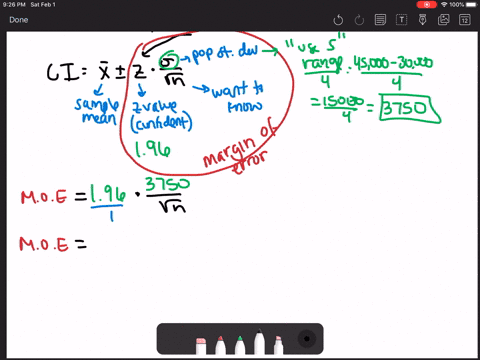 9:26 PM Sat Feb 1
100%
Done
T
12
CI = x̄ ± z · σ/√n
→ pop st. dev → "use s"
sample mean
z value (confident)
→ want to know
1.96
margin of error
range/4 : 45,000-30,000/4
= 15000/4 = 3750
M.O.E = 1.96/1 · 3750/√n
M.O.E =